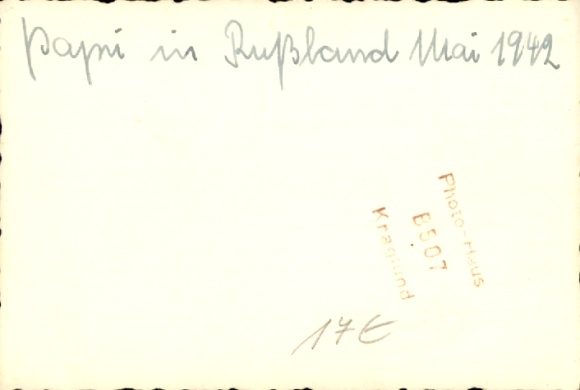 Papi in Rußland Mai 1942
Photo-Haus
B507
17€